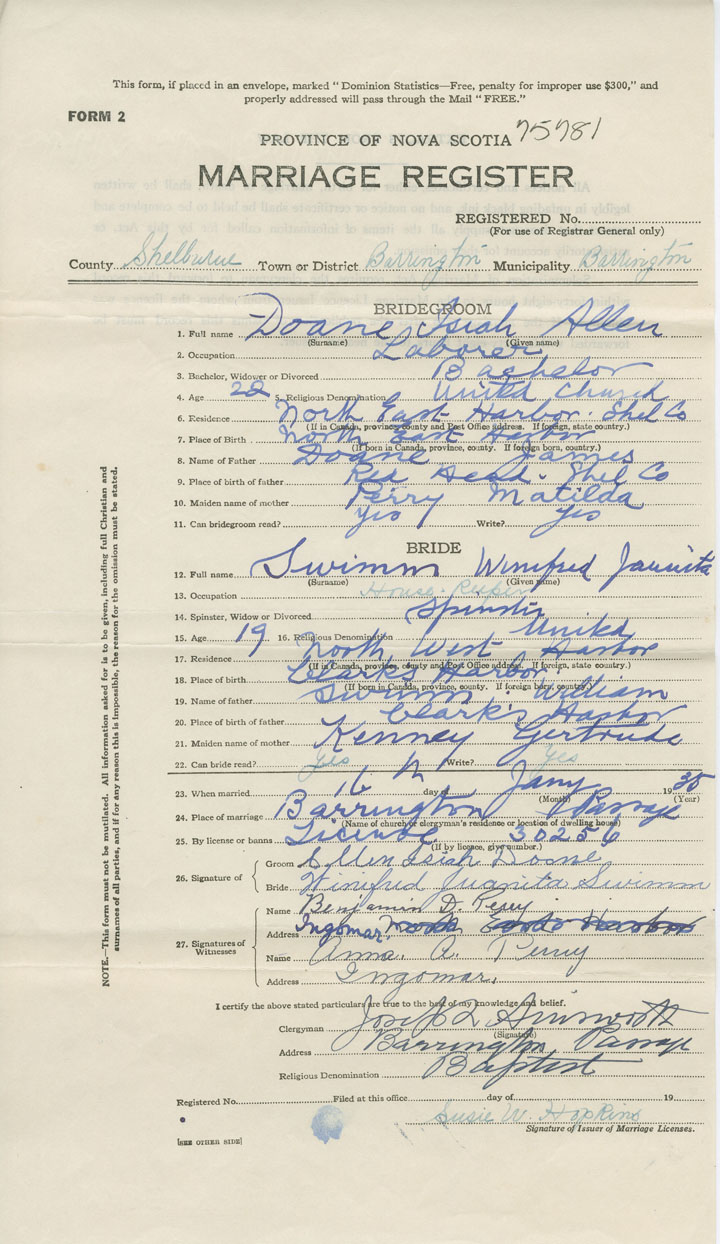 This form, if placed in an envelope, marked "Dominion Statistics—Free, penalty for improper use $300," and
properly addressed will pass through the Mail "FREE."
FORM 2
PROVINCE OF NOVA SCOTIA 75781
MARRIAGE REGISTER
REGISTERED No.
(For use of Registrar General only)
County Shelburne Town or District Barrington Municipality Barrington
BRIDEGROOM
1. Full name Doane Isiah Allen
(Surname) (Given name)
2. Occupation Laborer
3. Bachelor, Widower or Divorced Bachelor
4. Age 22 5. Religious Denomination United Church
6. Residence North East Harbor. Shel Co
(If in Canada, province, county and Post Office address. If foreign, state country.)
7. Place of Birth North East Harbor
(If born in Canada, province, county. If foreign born, country.)
8. Name of Father Doane James
9. Place of birth of father Red Head. Shel Co
10. Maiden name of mother Perry Matilda
11. Can bridegroom read? Yes Write? Yes
BRIDE
12. Full name Swimm Winifred Jaunita
(Surname) (Given name)
13. Occupation House-Keeper
14. Spinster, Widow or Divorced Spinster
15. Age 19 16. Religious Denomination United
17. Residence North West Harbor
(If in Canada, province, county and Post Office address. If foreign, state country.)
18. Place of birth Clark's Harbor
(If born in Canada, province, county. If foreign born, country.)
19. Name of father Swimm William
20. Place of birth of father Clark's Harbor
21. Maiden name of mother Kenney Gertrude
22. Can bride read? Yes Write? Yes
23. When married 16th day of Jany 1935
(Month) (Year)
24. Place of marriage Barrington Passage
(Name of church or clergyman's residence or location of dwelling house)
25. By license or banns License 30256
(If by licence, give number.)
26. Signature of
Groom Allen Isiah Doane
Bride Winifred Juanita Swimm
27. Signatures of Witnesses
Name Benjamin D. Perry
Address Ingomar, North East Harbor
Name Anna A. Perry
Address Ingomar.
I certify the above stated particulars are true to the best of my knowledge and belief.
Clergyman Josiph L
(Signature)
Address Barrington Passage
Religious Denomination Baptist
Registered No. Filed at this office day of 19
Susie W. Hopkins
Signature of Issuer of Marriage Licenses.
[SEE OTHER SIDE]
NOTE.—This form must not be mutilated. All information asked for is to be given, including full Christian and
surnames of all parties, and if for any reason this is impossible, the reason for the omission must be stated.